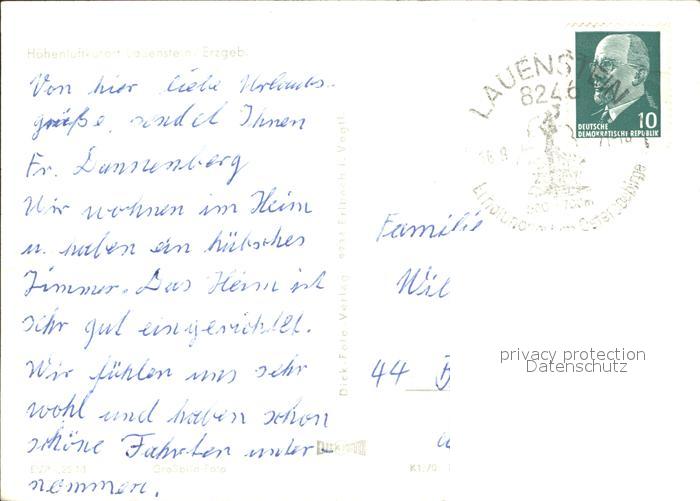 Höhenluftkurort Lauenstein, Erzgeb.
Von hier liebe Urlaubs-
grüße, sendet Ihnen
Fr. Dannenberg
Wir wohnen im Heim
u. haben ein hübsches
Zimmer. Das Heim ist
sehr gut eingerichtet.
Wir fühlen uns sehr
wohl und haben schon
schöne Fahrten unter-
nommen.
Großbild-Foto
K1/70
Dick-Foto Verlag 9233 Erlbach i. Vogtl.
LAUENSTEIN
8246
10
DEUTSCHE
DEMOKRATISCHE REPUBLIK
Familie
Wil
44 B
privacy protection
Datenschutz